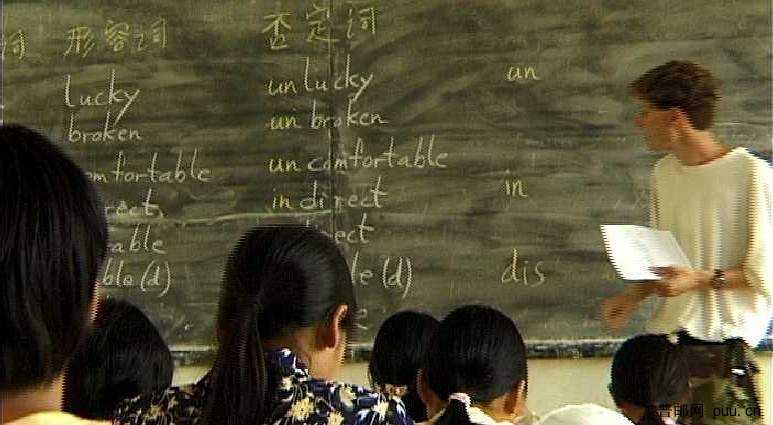 词 形容词 否定词
lucky unlucky un
broken unbroken
mfortable uncomfortable
rect indirect in
able rect
ble(d) le(d) dis
普邮网 puu.cn